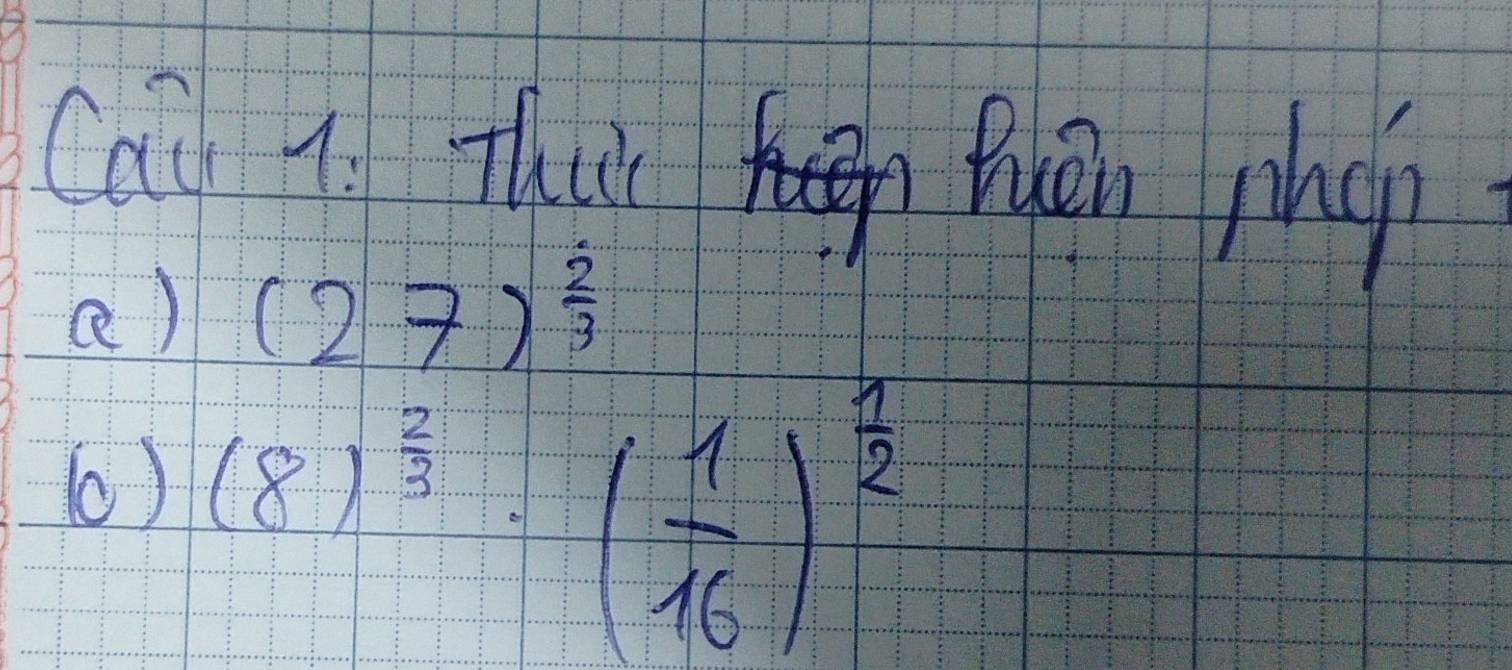 Câu 1: Thực hiện phép
a) (27)^(2/3)
b) (8)^(2/3) . (1/16)^(1/2)